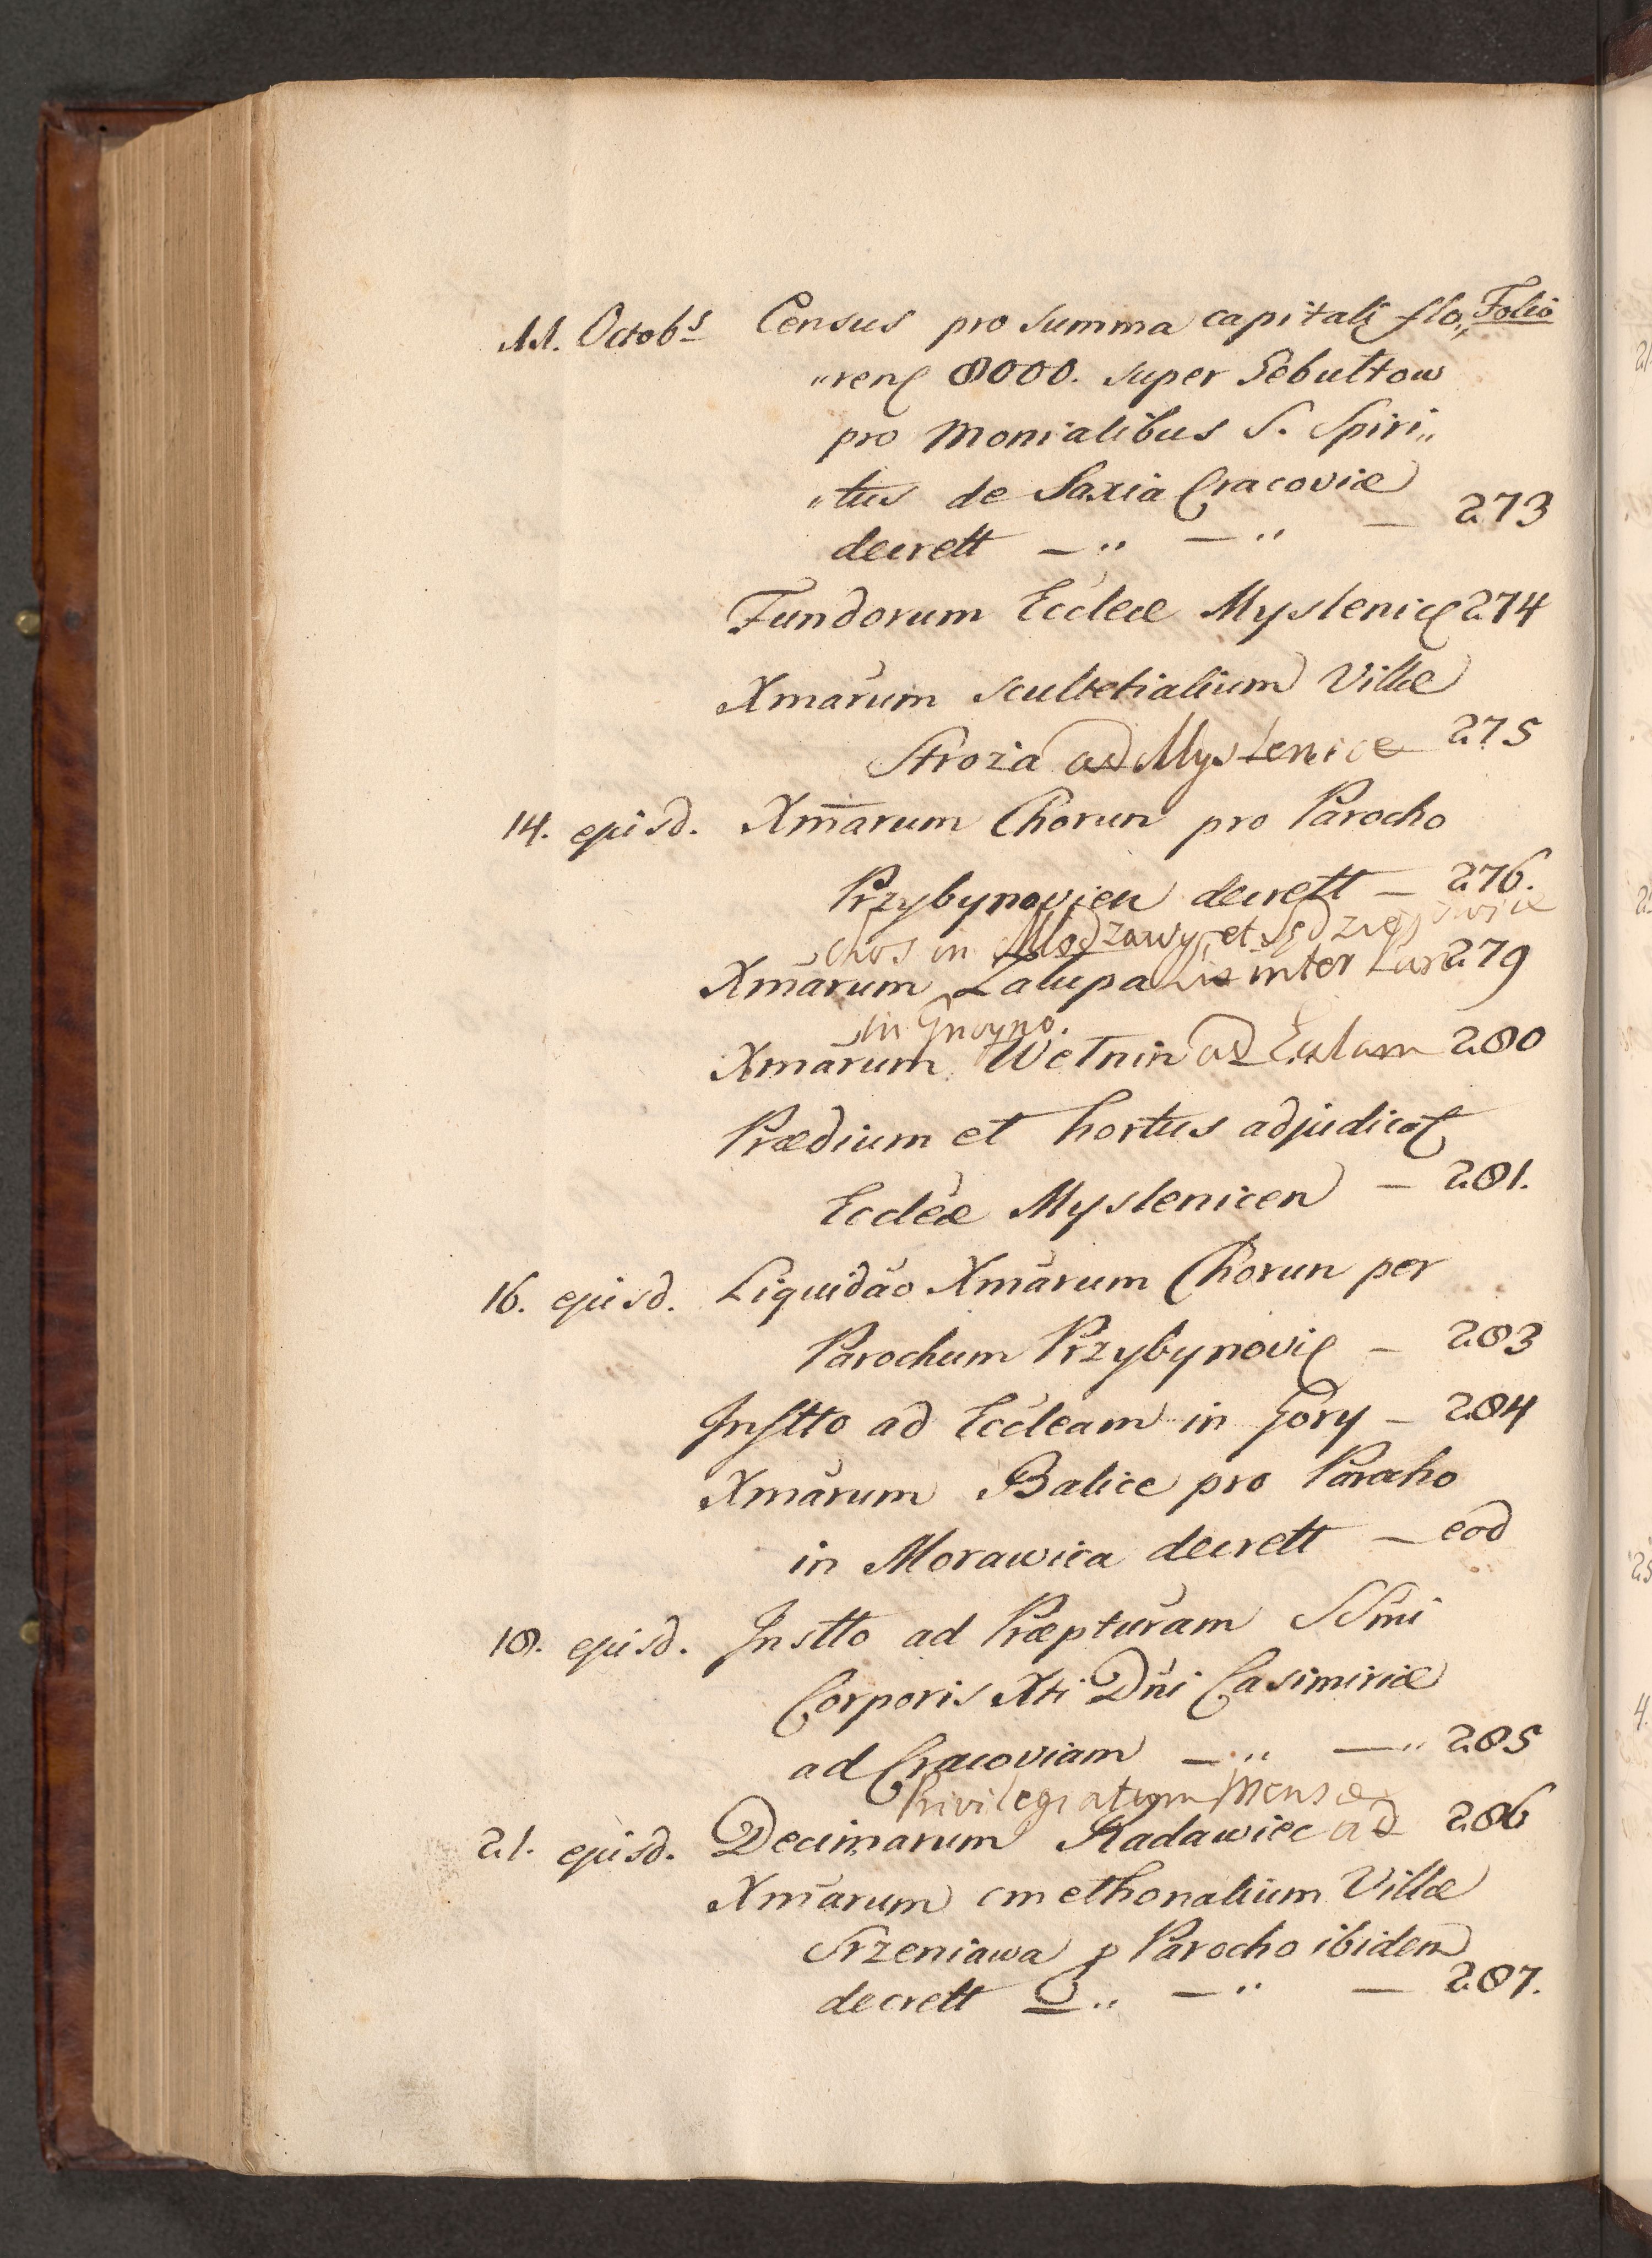 Folio
11. Octobs Census pro summa capitali flo„
„ren 8000. super Sebultow
pro Monialibus S. Spiri„
„tus de Saxia Cracoviæ
decrett —„ —„ — 273
Fundorum Eccleæ Myslenic 274
Xmarum scultetialium Villæ
Stroza ad Myslenice 275
14. ejusd. Xmarum Chorun pro Parocho
Przybynovien decrett — 276.
chos in Mlodzawy, et
Xmarum Zalupa Lis inter 279
in Gnoyno.
Xmarum Wetnin ad Eculam 280
Prædium et hortus adjudicat
Eccleæ Myslenicen — 281.
16. ejusd. Liquidao Xmarum Chorun per
Parochum Przybynovic — 283
Instto ad Eccleam in Gory — 284
Xmarum Balice pro Parocho
in Morawica decrett — eod
18. ejusd. Instto ad Præpturam SSmi
Corporis Xti Dni Casimiriæ
ad Cracoviam —„ —„ 285
Privilegiatum Mensæ
21. ejusd. Decimarum Radawiec ad 286
Xmarum cmethonalium Villæ
Srzeniawa p Parocho ibidem
decrett —„ —„ — 287.